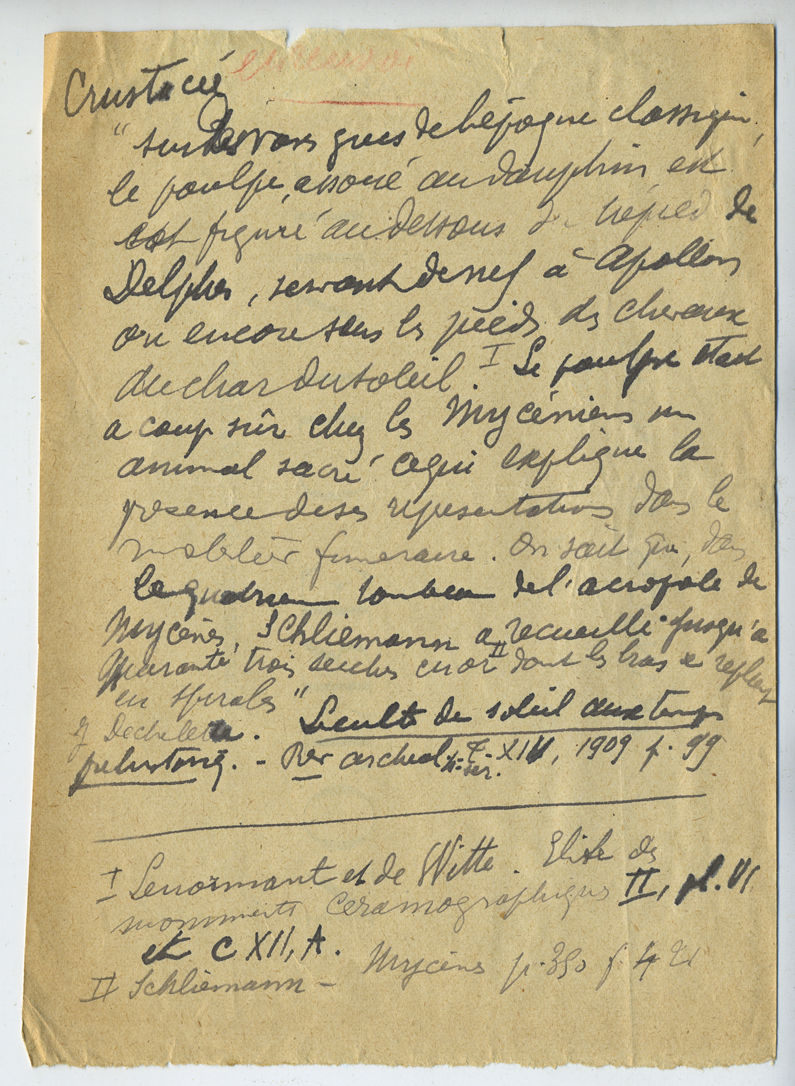 Crustacé
" sur les vases grecs de l'époque classique,
le poulpe, associé au dauphin est
est figuré au dessous du trépied de
Delphes, servant de nef à Apollon
ou encore sous les pieds des chevaux
du char du soleil. I Le poulpe était
a coup sûr chez les Mycéniens un
animal sacré ce qui explique la
présence de ses représentations dans le
mobilier funéraire. On sait que, dans
le quatrième tombeau de l'acropole de
Mycènes, Schliemann a recueilli jusqu'à
quarante trois seiches en or II dont les bras se replient
en spirales "
J Dechelette. Le culte du soleil aux temps
préhistoriq. - Rev archeol 4e ser. T. XIV, 1909 p. 99
I Lenormant et de Witte. Elite des
monuments céramographiques II, pl. VI
et C XII, A.
II Schliemann - Mycènes p. 350 f 421